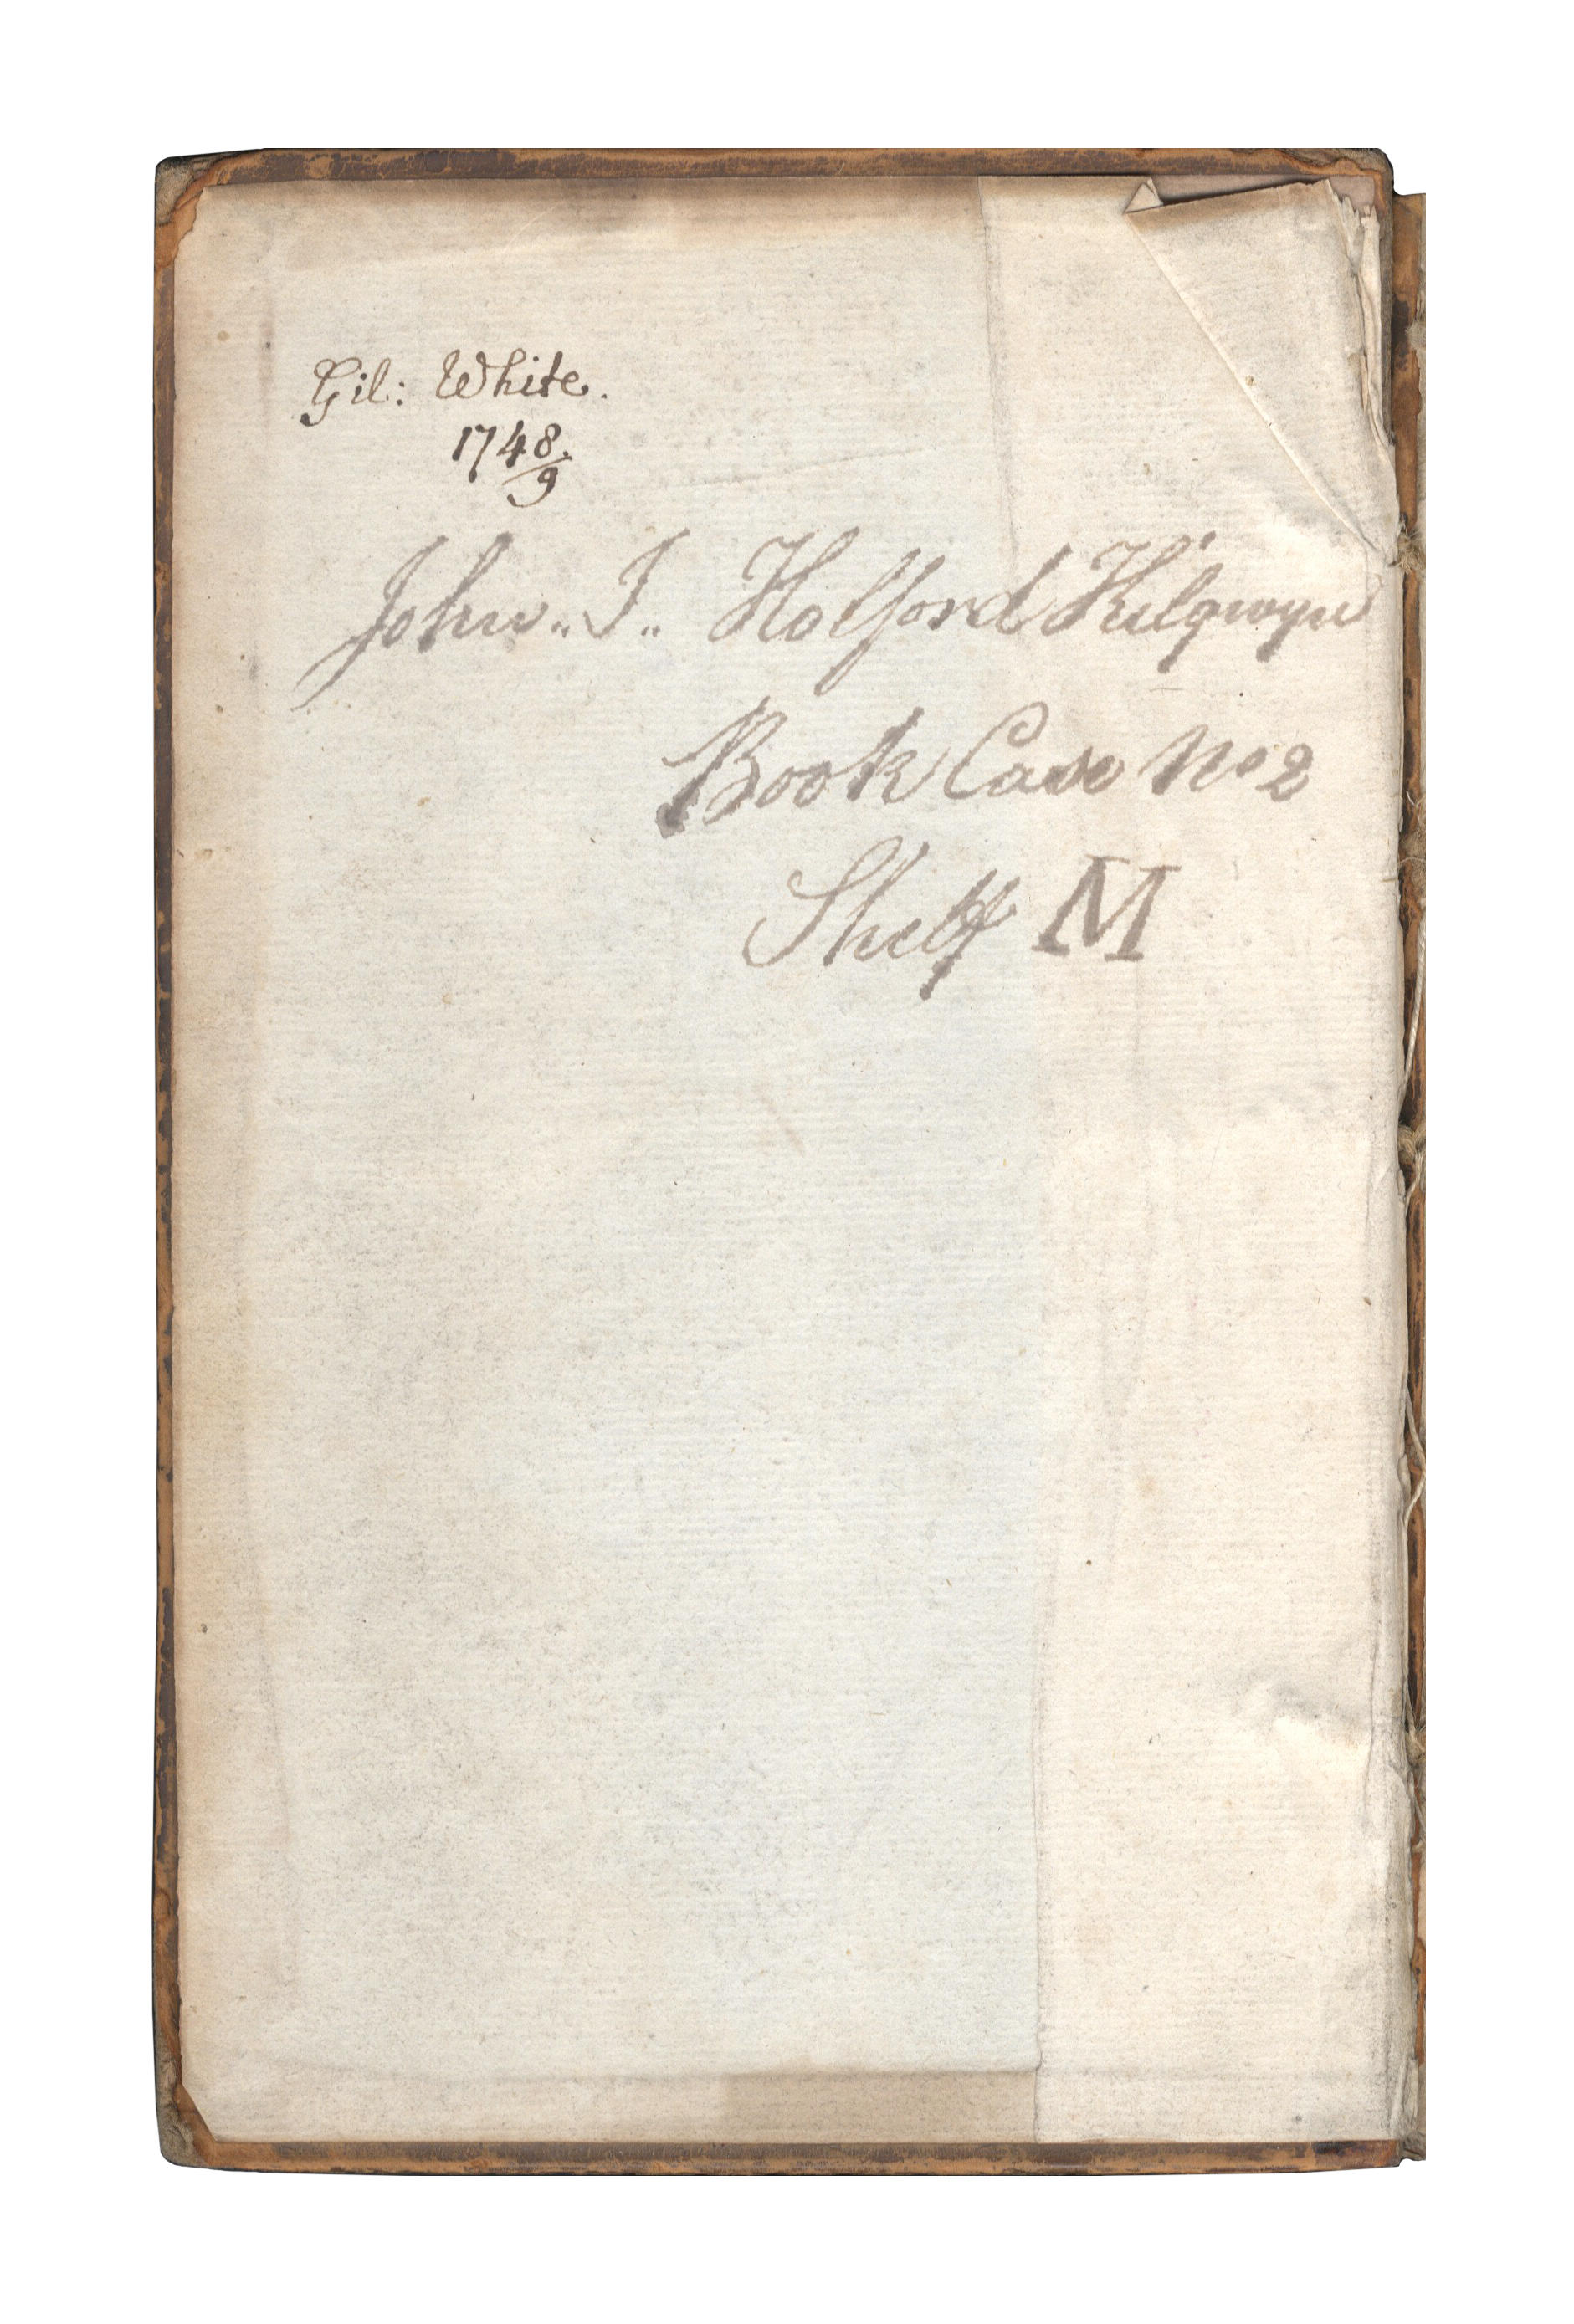 Gil: White.
1748/9
John„ J„ Holford Kilgwyn
Book Case No 2
Shelf M